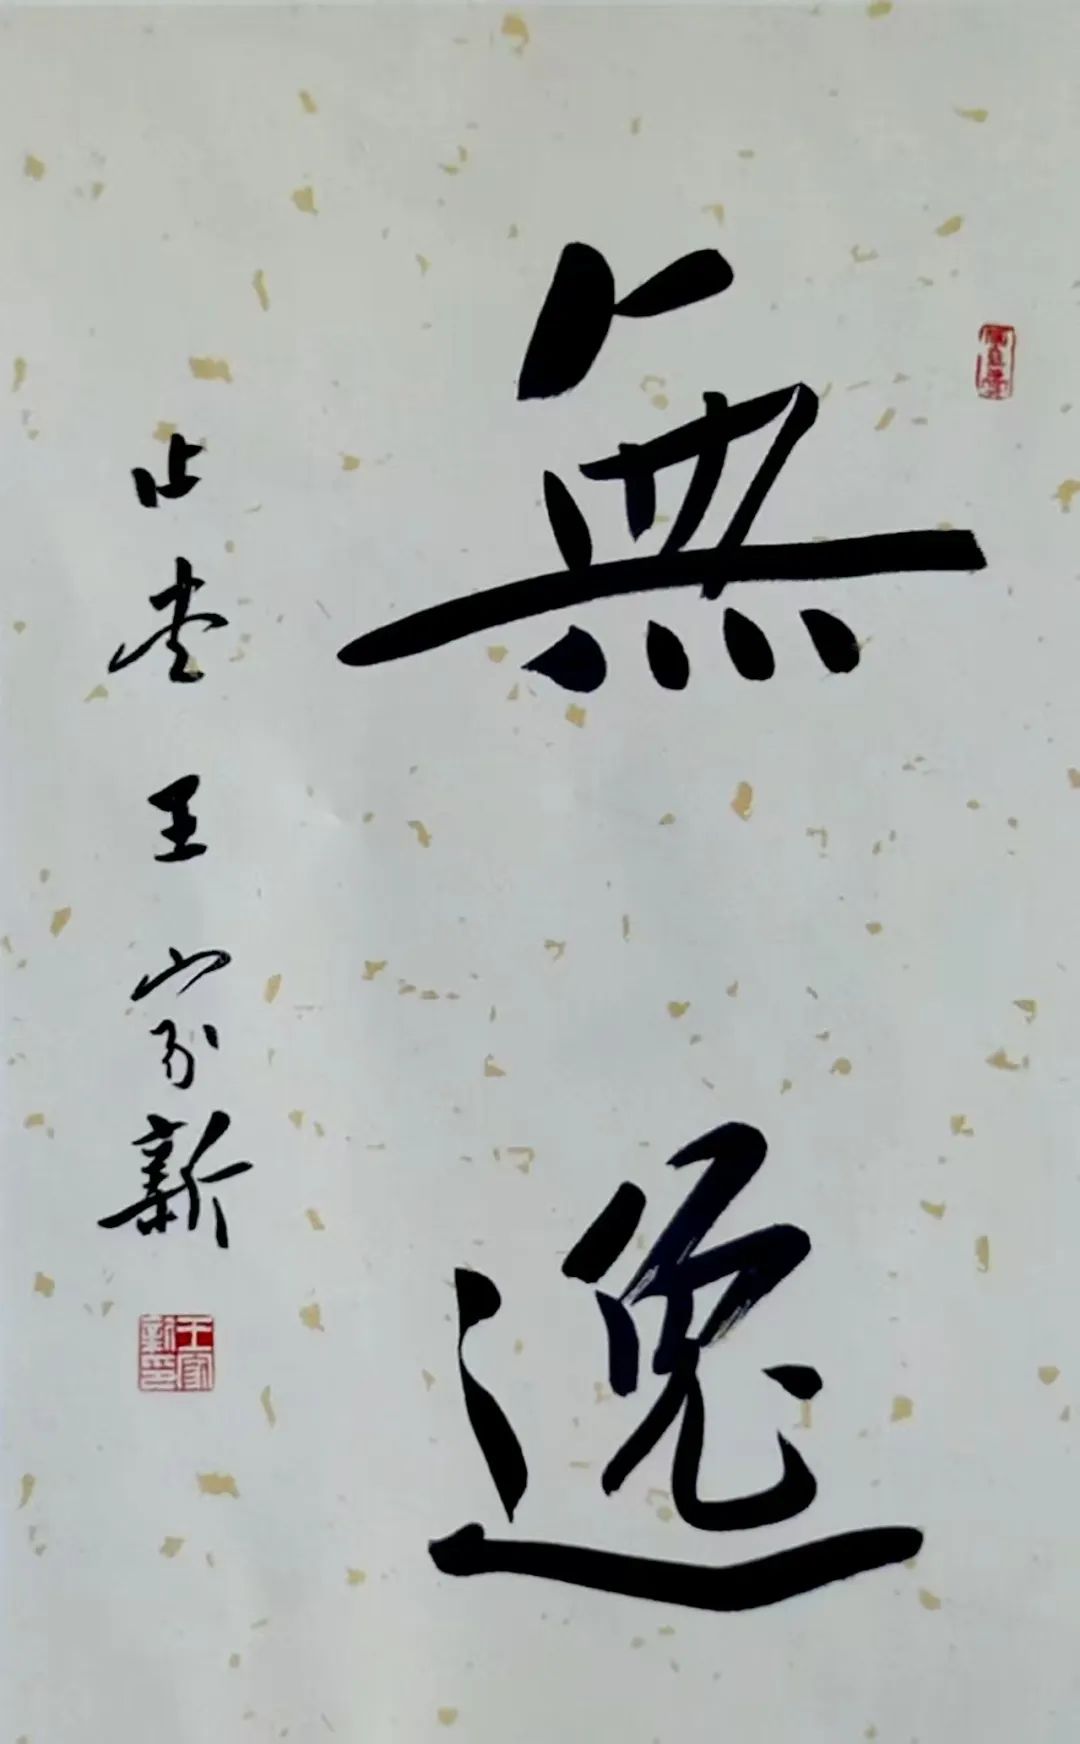 無逸
止堂王家新
王家新印